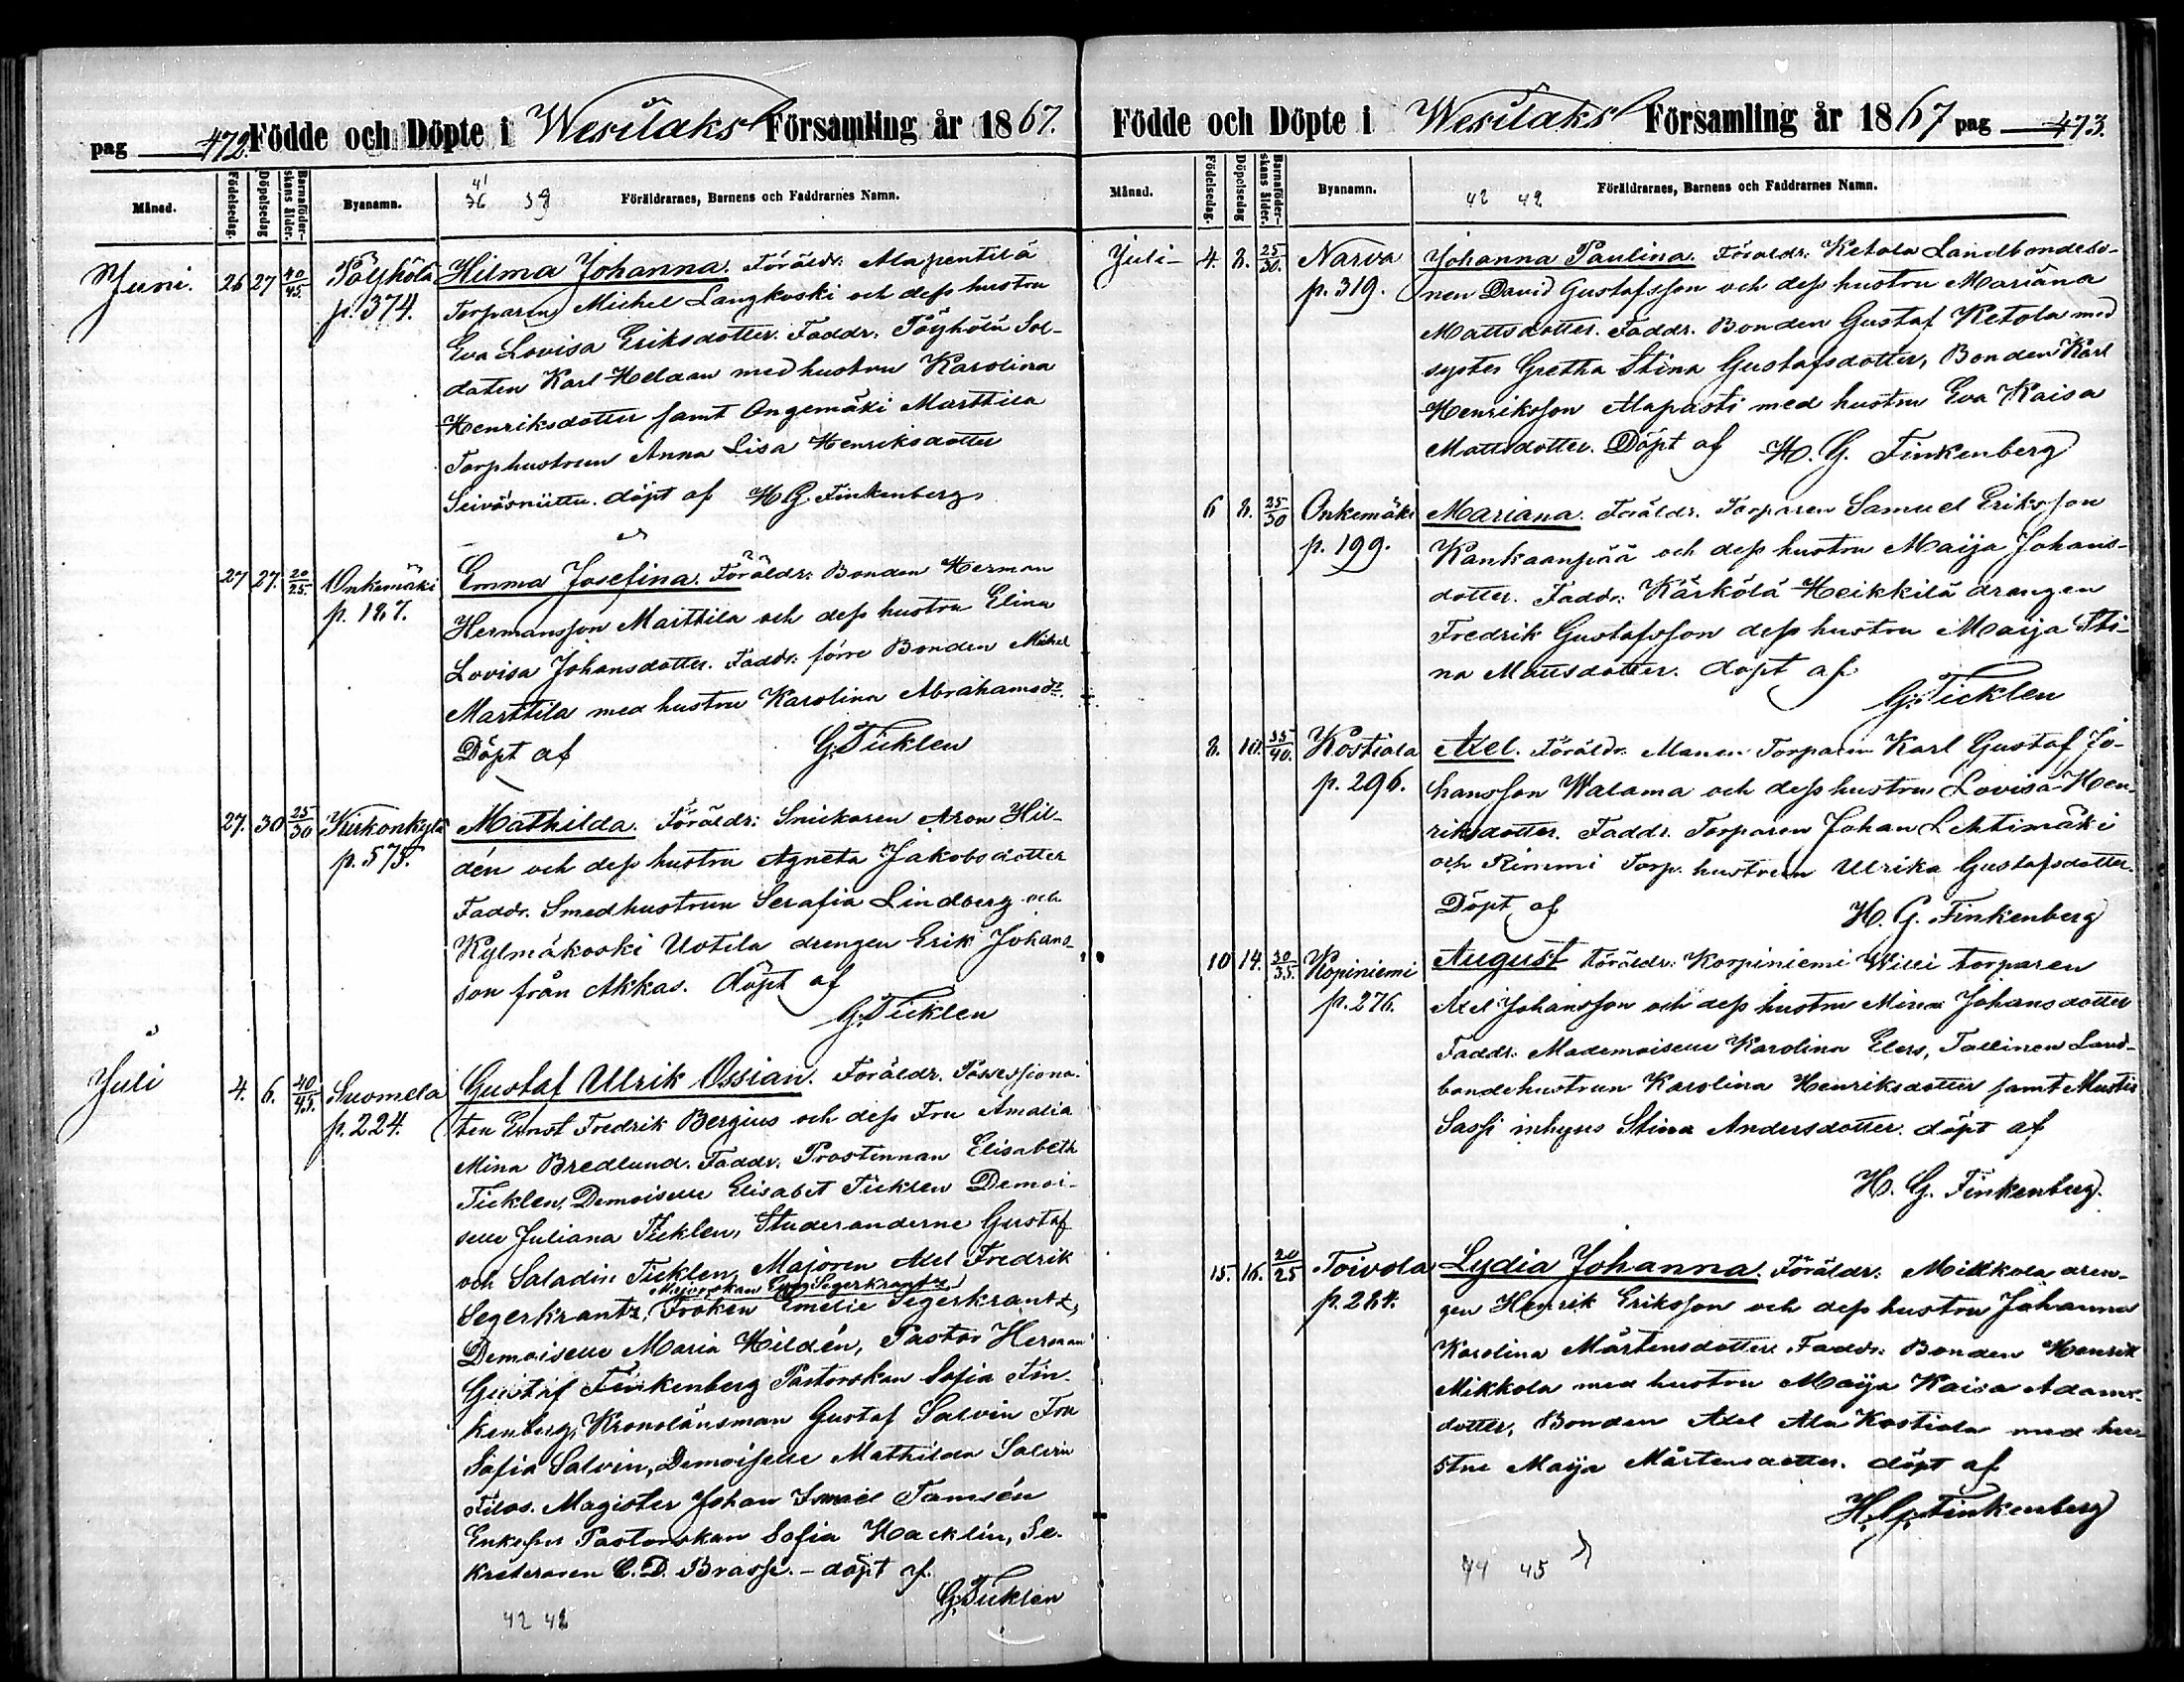 pag 472. Födde och Döpte i Wesilaks Församling år 1867.
Månad. Födelsedag. Döpelsedag Barnaföderskans ålder. Byanamn. Föräldrarnes, Barnens och Faddrarnes Namn.
41
36 39
Juni. 26 27 40/45 Pöyhölä Hilma Johanna. Föräldr. Alapentilä
p. 374. Torparen Michel Langkoski och dess hustru
Eva Lovisa Eriksdotter. Faddr. Pöyhölä Sol-
daten Karl Heldan med hustru Karolina
Henriksdotter samt Ongemäki Marttila
Torphustrun Anna Lisa Henriksdotter
döpt af H G Finkenberg
27 27. 20/25 Onkemäki Emma Josefina. Föräldr. Bonden Herman
p. 187. Hermansson Marttila och dess hustru Elina
Lovisa Johansdotter. Faddr. förre Bonden Michel
Marttila med hustru Karolina Abrahamsdr.
Döpt af G. Ticklen
27. 30 25/30 Kirkonkylä Mathilda. Föräldr: Snickaren Aron Hil-
p. 575. dén och dess hustru Agneta Jakobsdotter
Faddr. Smedhustrun Serafia Lindberg och
Kylmäkoski Uotila drengen Erik Johans-
son från Akkas. döpt af
G. Ticklen
Juli 4. 6. 40/45 Suomela Gustaf Ulrik Ossian. Föräldr. Possessiona-
p. 224. ten Ernst Fredrik Bergius och dess Fru Amalia
Mina Bredlund. Faddr. Prostinnan Elisabeth
Ticklen, Demoiselle Elisabet Ticklen Demoi-
selle Juliana Ticklen, Studeranderne Gustaf
och Saladin Ticklen, Majoren Axel Fredrik
Majorskan Eva Segerkrantz
Segerkrantz, Fröken Emelie Segerkrantz,
Demoiselle Maria Hildén, Pastor Herman
Gustaf Finkenberg Pastorskan Sofia Fin-
kenberg, Kronolänsman Gustaf Salvin Fru
Sofia Salvin, Demoiselle Mathilda Salvin
Filos. Magister Johan Israel Tamlén
Enkefru Pastorskan Sofia Hacklin, Se-
kreteraren C. D. Brasse. - döpt af
G. Ticklen
42 42
Födde och Döpte i Wesilaks Församling år 1867 pag 473.
Månad. Födelsedag. Döpelsedag Barnaföderskans ålder. Byanamn. Föräldrarnes, Barnens och Faddrarnes Namn.
42 42
Juli- 4. 8. 25/30. Narva Johanna Paulina. Föräldr: Ketola Landbondeso-
p. 319. nen David Gustafsson och dess hustru Mariana
Mattsdotter. Faddr. Bonden Gustaf Ketola med
syster Gretha Stina Gustafsdotter, Bonden Karl
Henriksson Alapasti med hustru Eva Kaisa
Mattsdotter. Döpt af H. G. Finkenberg
6 8. 25/30 Onkemäki Mariana. Föräldr. Torparen Samuel Eriksson
p. 199. Kankaanpää och dess hustru Maija Johans-
dotter. Faddr: Kärkölä Heikkilä drängen
Fredrik Gustafsson dess hustru Maija Sti-
na Mattsdotter. döpt af
G. Ticklen
8. 10. 35/40. Kostiala Axel. Föräldr. Manen Torparen Karl Gustaf Jo-
p. 296. hansson Walama och dess hustru Lovisa Hen-
riksdotter. Faddr. Torparen Johan Lehtimäki
och Rimmi Torp. hustrun Ulrika Gustafsdotter.
Döpt af H. G. Finkenberg
10 14. 30/35. Kopiniemi August Föräldr: Korpiniemi Willi torparen
p. 276. Axel Johansson och dess hustru Mina Johansdotter
Faddr. Mademoiselle Karolina Elers, Tallinen Land-
bondehustrun Karolina Henriksdotter samt
Sassi inhyses Stina Andersdotter. döpt af
H. G. Finkenberg.
15. 16. 20/25 Toivola Lydia Johanna. Föräldr: Mikkola dren-
p. 284. gen Henrik Eriksson och dess hustru Johanna
Karolina Mårtensdotter. Faddr. Bonden Henrik
Mikkola med hustru Maija Kaisa Adams-
dotter, Bonden Axel Ala Kostiala med hu-
stru Maija Mårtensdotter. döpt af
H. G. Finkenberg
44 45